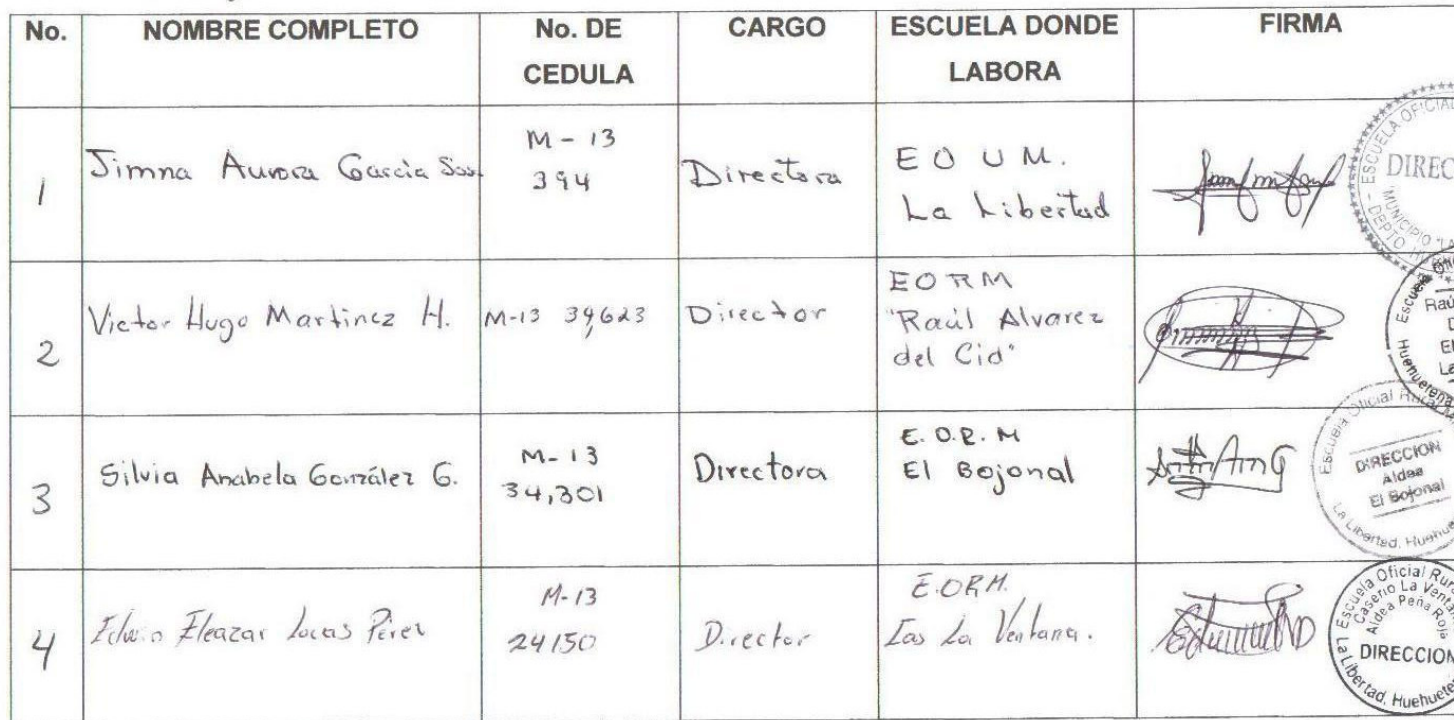 No.
NOMBRE COMPLETO
No. DE
CEDULA
CARGO
ESCUELA DONDE
LABORA
FIRMA
1
Jimna Aurora García
M-13
394
Directora
E O U M.
La Libertad
ESCUELA OFICIAL
DIREC
MUNICIPIO "LA
DEPTO
2
Victor Hugo Martinez H.
M-13 39,623
Director
EORM
"Raúl Alvarez
del Cid"
Escuela
Raú
Huehuetena
3
Silvia Anabela González G.
M-13
34,301
Directora
E. O. R. M
El Bojonal
Escuela Oficial Rural
DIRECCION
Aldea
El Bojonal
La Libertad, Huehue
4
Edwin Eleazar Lucas Pérez
M-13
24150
Director
E.O.R.M.
La Ventana.
Escuela Oficial Rura
Caserio La Ventan
Aldea Peña Roja
DIRECCION
La Libertad, Huehuete